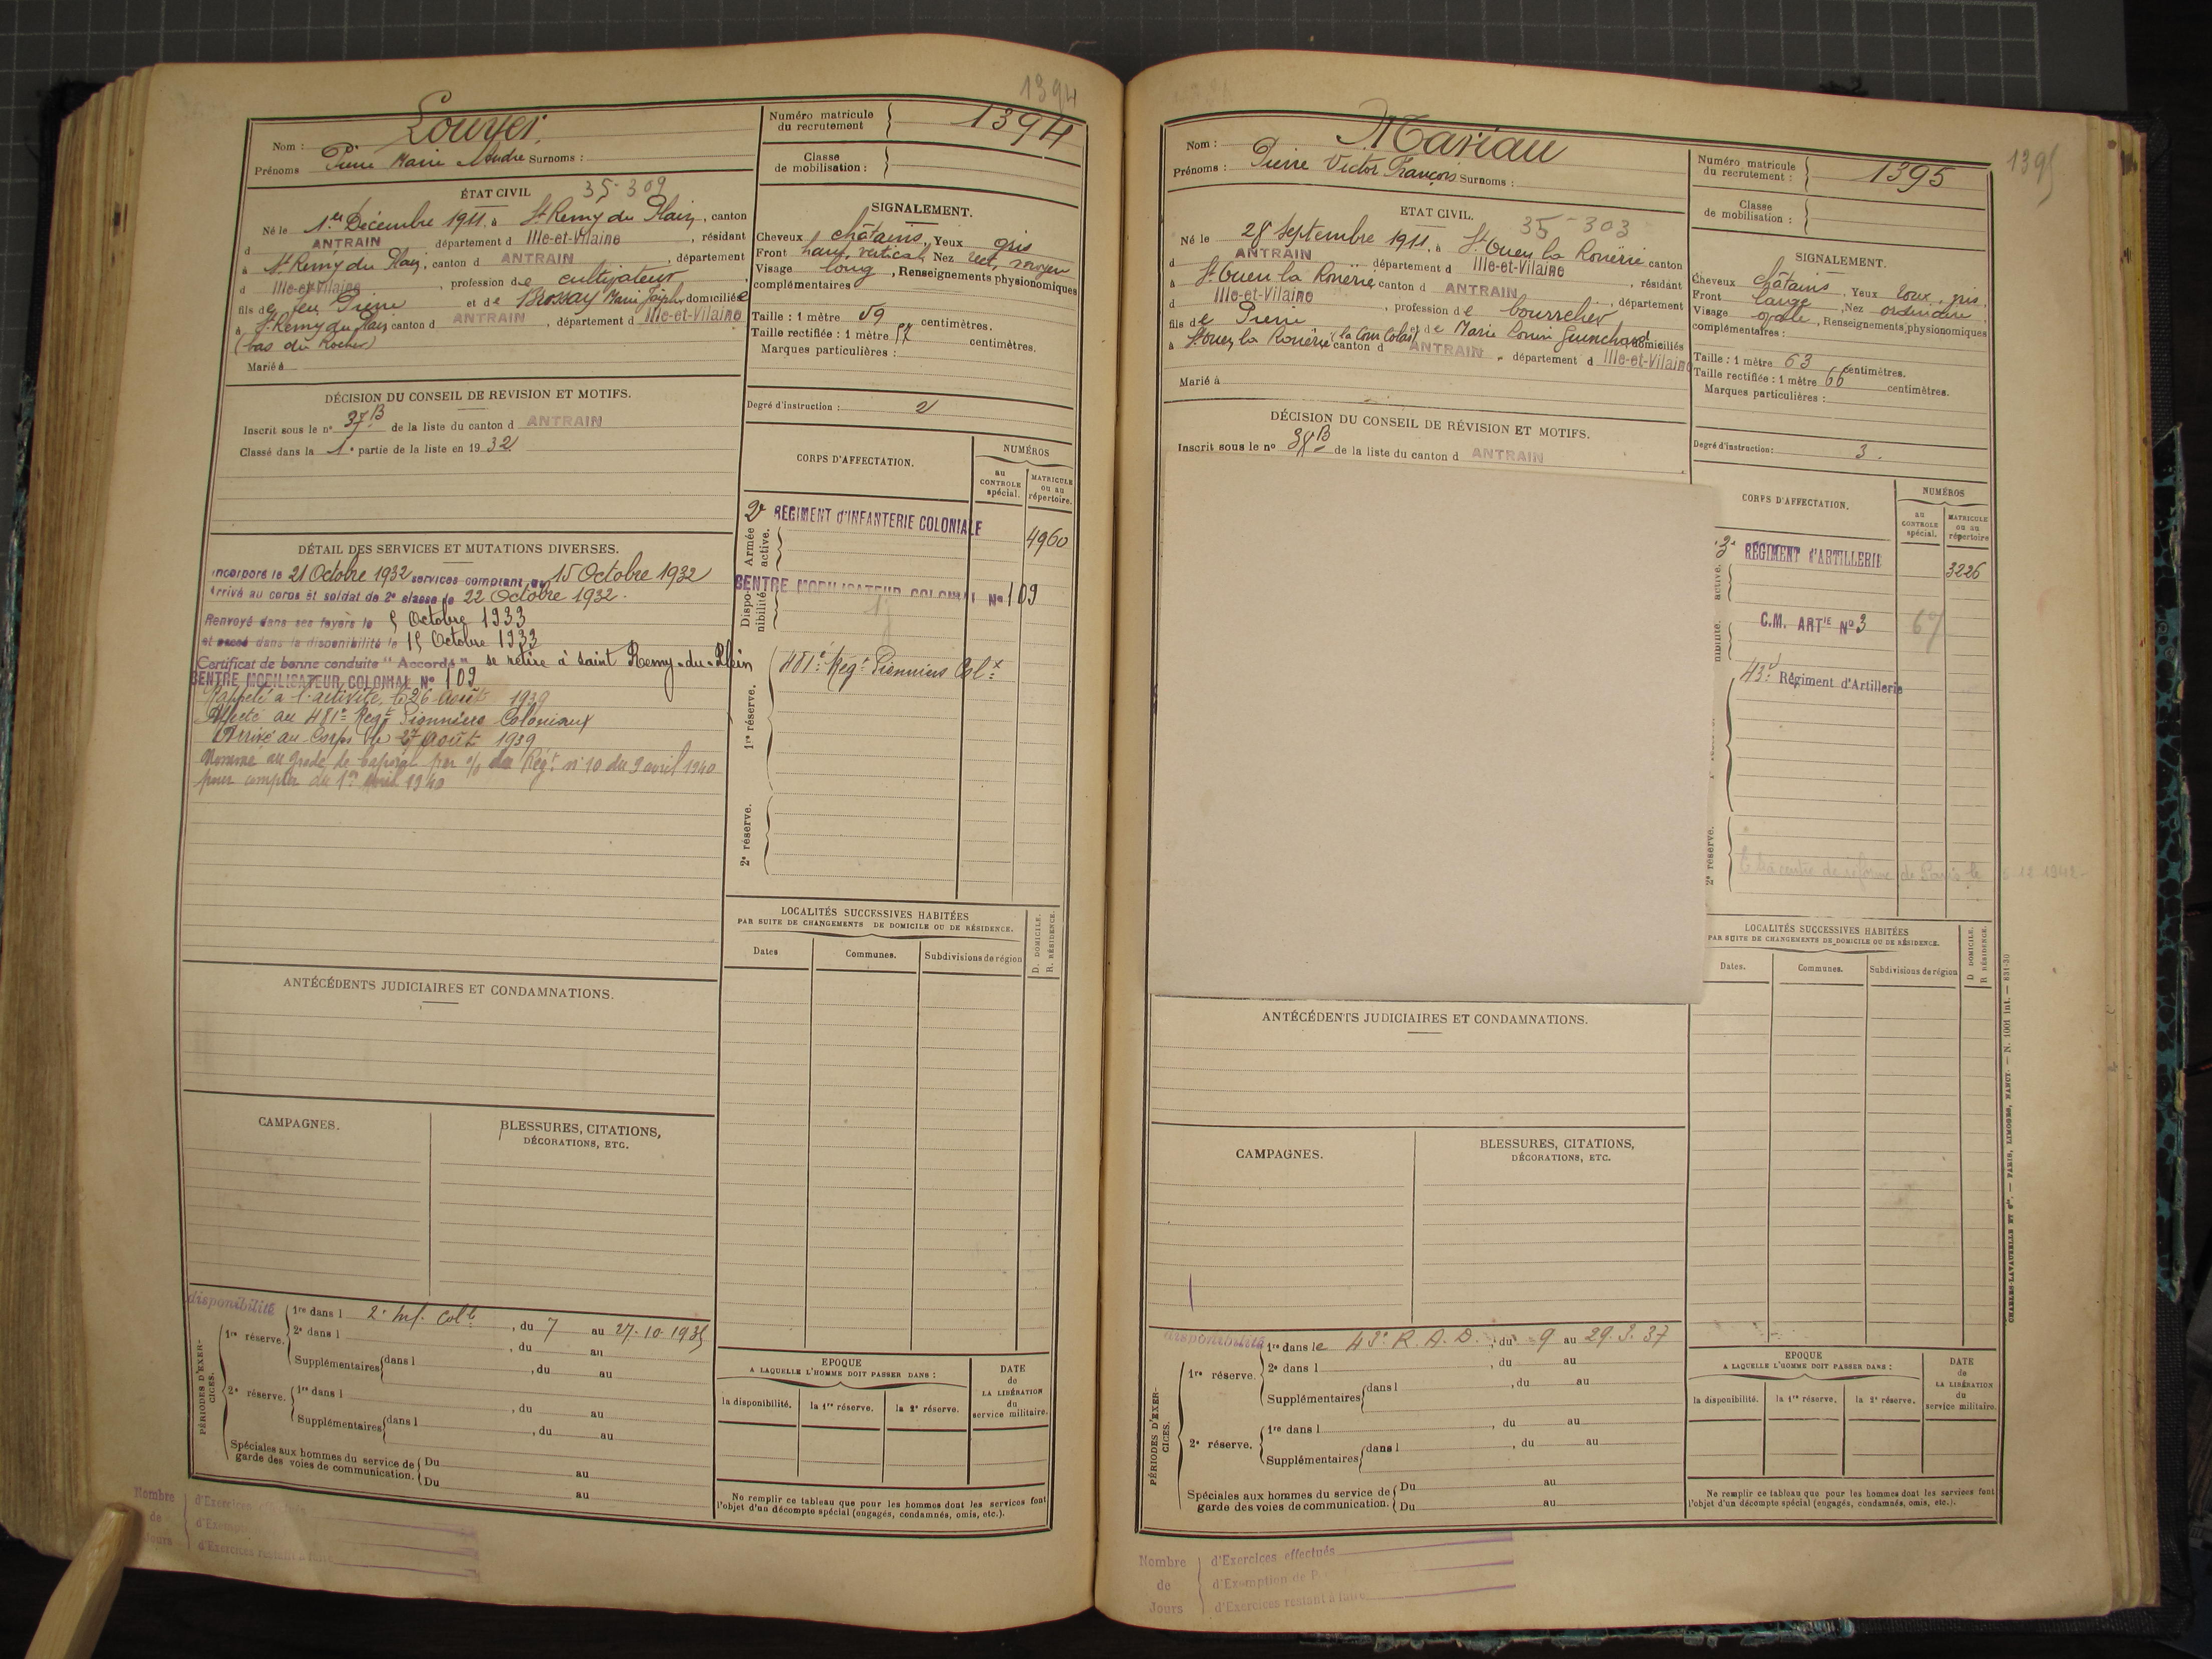 1394
Nom : Louyer
Prénoms Pierre Marie André Surnoms :
Numéro matricule du recrutement 1394
Classe de mobilisation :
ÉTAT CIVIL 35-309
Né le 1er Décembre 1911, à St Remy du Plain, canton
d ANTRAIN département d Ille-et-Vilaine, résidant
à St Remy du Plain, canton d ANTRAIN, département
d Ille-et-Vilaine, profession de cultivateur
fils de feu Pierre et de Brossay Marie Joseph domiciliée
à St Remy du Plain canton d ANTRAIN, département d Ille-et-Vilaine
(bas du Rocher)
Marié à
SIGNALEMENT.
Cheveux châtains, Yeux gris
Front haut, vertical, Nez rect, moyen
Visage long, Renseignements physionomiques
complémentaires
Taille : 1 mètre 59 centimètres.
Taille rectifiée : 1 mètre centimètres.
Marques particulières :
Degré d'instruction : 2
DÉCISION DU CONSEIL DE REVISION ET MOTIFS.
Inscrit sous le n° 37B de la liste du canton d ANTRAIN
Classé dans la 1e partie de la liste en 1932
DÉTAIL DES SERVICES ET MUTATIONS DIVERSES.
Incorporé le 21 Octobre 1932 services comptant du 15 Octobre 1932
Arrivé au corps et soldat de 2e classe le 22 Octobre 1932.
Renvoyé dans ses foyers le 5 Octobre 1933
et passé dans la disponibilité le 15 Octobre 1933
Certificat de bonne conduite "Accordé" se retire à Saint Remy-du-Plein
CENTRE MOBILISATEUR COLONIAL N° 109
Rappelé à l'activité le 26 août 1939
Affecté au 481e Regt Pionniers Coloniaux
Arrivé au Corps le 27 août 1939
Nommé au grade de Caporal par o/ du Régt n° 10 du 9 avril 1940
pour compter du 1er avril 1940
CORPS D'AFFECTATION.
NUMÉROS
au CONTROLE spécial.
MATRICULE ou au répertoire.
Armée active.
2e RÉGIMENT D'INFANTERIE COLONIALE
4960
Disponibilité.
CENTRE MOBILISATEUR COLONIAL N° 109
1re réserve.
481e Regt Pionniers Colx
2e réserve.
LOCALITÉS SUCCESSIVES HABITÉES
PAR SUITE DE CHANGEMENTS DE DOMICILE OU DE RÉSIDENCE.
Dates Communes. Subdivisions de région
D. DOMICILE.
R. RÉSIDENCE.
ANTÉCÉDENTS JUDICIAIRES ET CONDAMNATIONS.
CAMPAGNES.
BLESSURES, CITATIONS,
DÉCORATIONS, ETC.
PÉRIODES D'EXERCICES.
disponibilité
1re réserve.
1re dans l 2e Inf. Colle, du 7 au 27-10-1935
2e dans l , du au
Supplémentaires dans l , du au
2e réserve.
1re dans l , du au
Supplémentaires dans l , du au
Spéciales aux hommes du service de garde des voies de communication.
Du au
Du au
EPOQUE
A LAQUELLE L'HOMME DOIT PASSER DANS :
la disponibilité. la 1re réserve. la 2e réserve.
DATE de LA LIBÉRATION du service militaire.
Ne remplir ce tableau que pour les hommes dont les services font
l'objet d'un décompte spécial (engagés, condamnés, omis, etc.).
Nombre de Jours
d'Exercices effectués
d'Exemption
d'Exercices restant à faire
1395
Nom : Mariau
Prénoms : Pierre Victor François Surnoms :
Numéro matricule du recrutement : 1395
Classe de mobilisation :
ETAT CIVIL. 35-303
Né le 28 Septembre 1911, à St Ouen la Rouërie canton
d ANTRAIN, département d Ille-et-Vilaine, résidant
à St Ouen la Rouërie canton d ANTRAIN, département
d Ille-et-Vilaine, profession de bourrelier
fils de Pierre et de Marie Louise Guinchard domiciliés
à St Ouen la Rouërie (la Cour Colas) canton d ANTRAIN, département d Ille-et-Vilaine
Marié à
SIGNALEMENT.
Cheveux châtains, Yeux roux, gris,
Front large, Nez ordinaire
Visage ovale, Renseignements physionomiques
complémentaires :
Taille : 1 mètre 63 centimètres.
Taille rectifiée : 1 mètre 66 centimètres.
Marques particulières :
Degré d'instruction : 3.
DÉCISION DU CONSEIL DE RÉVISION ET MOTIFS.
Inscrit sous le n° 38B de la liste du canton d ANTRAIN
CORPS D'AFFECTATION.
NUMÉROS
au CONTROLE spécial.
MATRICULE ou au répertoire
active.
3e RÉGIMENT D'ARTILLERIE
3226
nibilité.
C.M. ARTIE N° 3
67
43e Régiment d'Artillerie
2e réserve.
centre de réforme de Paris le 12 1942
LOCALITÉS SUCCESSIVES HABITÉES
PAR SUITE DE CHANGEMENTS DE DOMICILE OU DE RÉSIDENCE.
Dates. Communes. Subdivisions de région
D DOMICILE.
R RÉSIDENCE.
ANTÉCÉDENTS JUDICIAIRES ET CONDAMNATIONS.
CAMPAGNES.
BLESSURES, CITATIONS,
DÉCORATIONS, ETC.
PÉRIODES D'EXERCICES.
disponibilité
1re réserve.
1re dans le 43e R. A. D., du 9 au 29.3.37
2e dans l , du au
Supplémentaires dans l , du au
2e réserve.
1re dans l , du au
Supplémentaires dans l , du au
Spéciales aux hommes du service de garde des voies de communication.
Du au
Du au
EPOQUE
A LAQUELLE L'HOMME DOIT PASSER DANS :
la disponibilité. la 1re réserve. la 2e réserve.
DATE de LA LIBÉRATION du service militaire.
Ne remplir ce tableau que pour les hommes dont les services font
l'objet d'un décompte spécial (engagés, condamnés, omis, etc.).
CHARLES-LAVAUZELLE ET Cie. — PARIS, LIMOGES, NANCY. — N. 1001 Int. — 631-30
Nombre de Jours
d'Exercices effectués
d'Exemption de
d'Exercices restant à faire